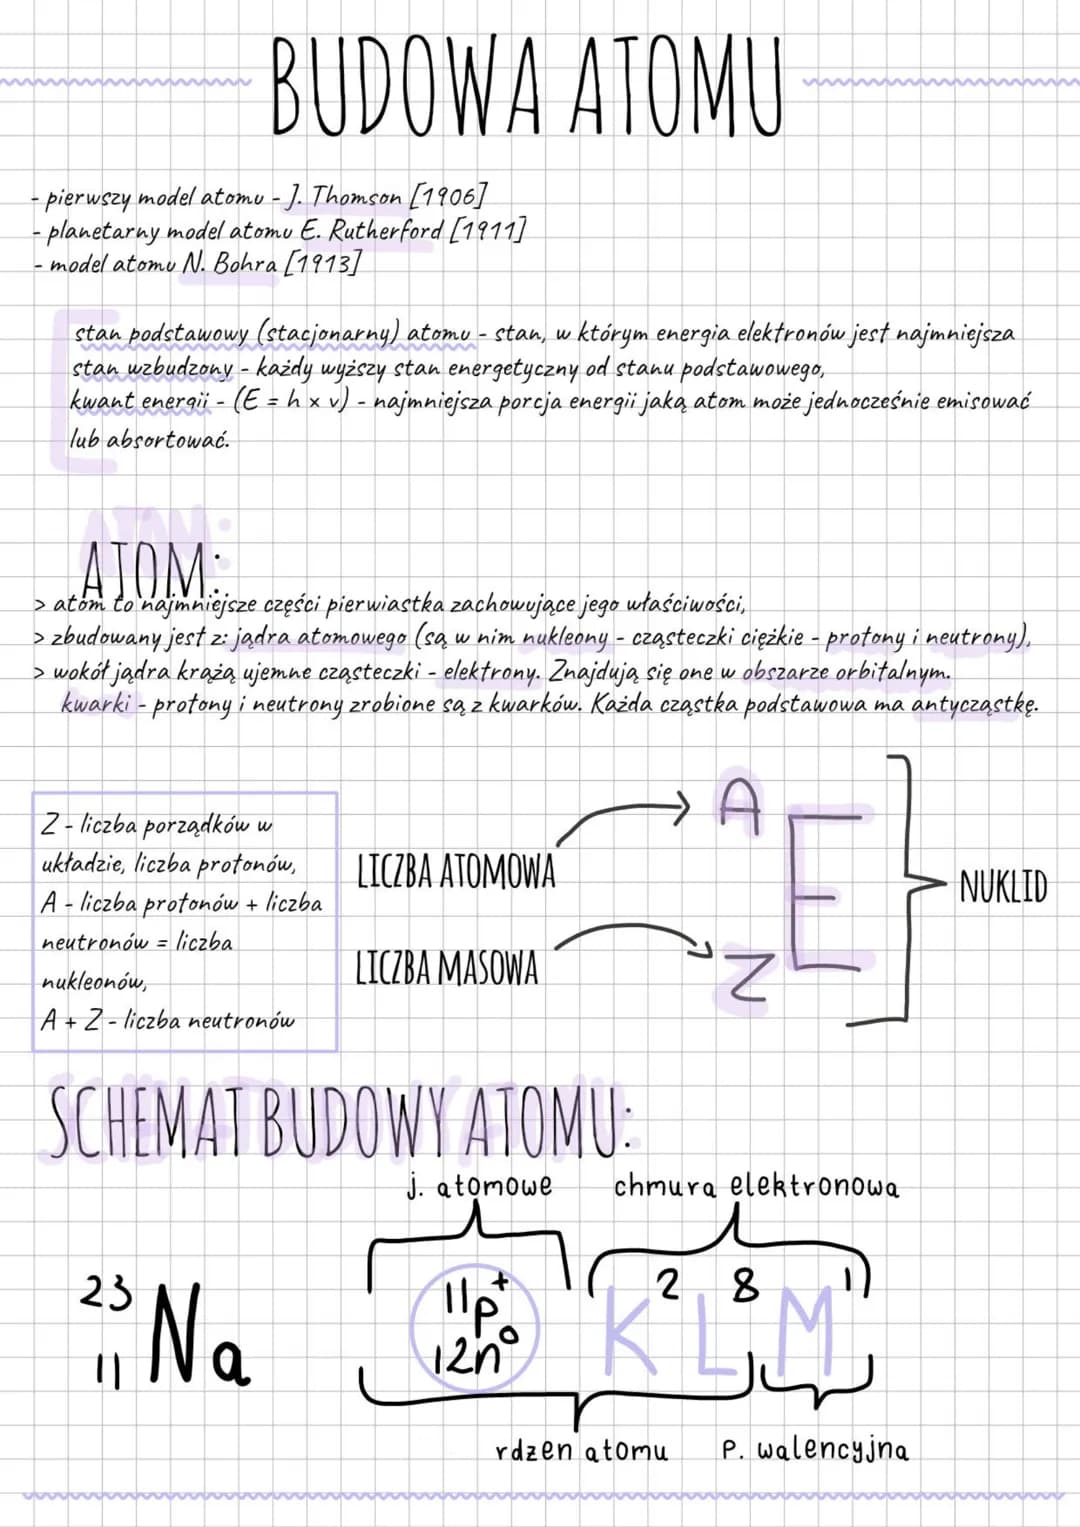 BUDOWA ATOMU
- pierwszy model atomu - J. Thomson [1906]
- planetarny model atomu E. Rutherford [1911]
- model atomu N. Bohra [1913]
stan podstawowy (stacjonarny) atomu - stan, w którym energia elektronów jest najmniejsza
stan wzbudzony - każdy wyższy stan energetyczny od stanu podstawowego,
kwant energii - (E = h x v) - najmniejsza porcja energii jaką atom może jednocześnie emisować
lub absortować.
ATOM:
> atom to najmniejsze części pierwiastka zachowujące jego właściwości,
> zbudowany jest z: jądra atomowego (są w nim nukleony - cząsteczki ciężkie - protony i neutrony),
> wokół jądra krążą ujemne cząsteczki - elektrony. Znajdują się one w obszarze orbitalnym.
kwarki - protony i neutrony zrobione są z kwarków. Każda cząstka podstawowa ma antycząstkę.
Z - liczba porządków w
układzie, liczba protonów,
A - liczba protonów + liczba
neutronów = liczba
nukleonów,
A + Z - liczba neutronów
LICZBA ATOMOWA
LICZBA MASOWA
A
E
Z
NUKLID
SCHEMAT BUDOWY ATOMU:
j. atomowe chmura elektronowa
23 11 Na
11p+
12n0
K2 L8 M1
rdzen atomu P. walencyjna